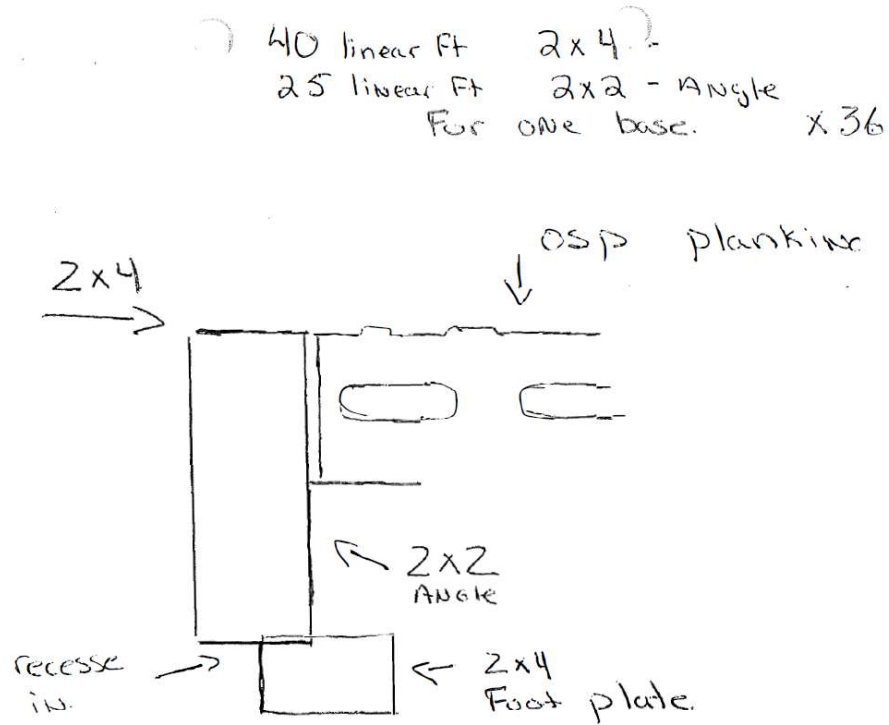 40 linear Ft 2x4 -
25 linear Ft 2x2 - Angle
For one base. x 36
osp planking
2x4
2x2
Angle
recesse
in.
2x4
Foot plate.